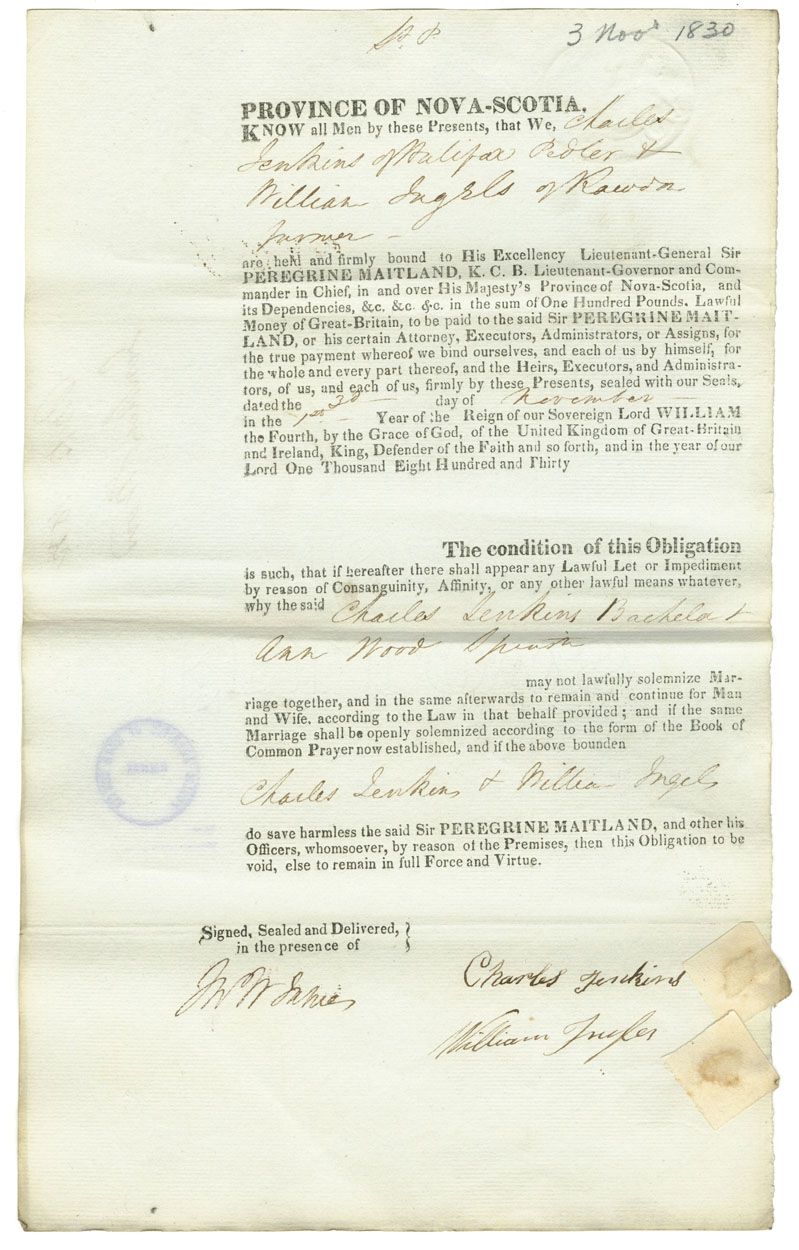 3 Novr 1830
PROVINCE OF NOVA-SCOTIA.
KNOW all Men by these Presents, that We, Charles
Jenkins of Halifax Pedler &
William Ingels of Rawdon
farmer —
are held and firmly bound to His Excellency Lieutenant-General Sir
PEREGRINE MAITLAND, K. C. B. Lieutenant-Governor and Com-
mander in Chief, in and over His Majesty's Province of Nova-Scotia, and
its Dependencies, &c. &c. &c. in the sum of One Hundred Pounds. Lawful
Money of Great-Britain, to be paid to the said Sir PEREGRINE MAIT-
LAND, or his certain Attorney, Executors, Administrators, or Assigns, for
the true payment whereof we bind ourselves, and each of us by himself, for
the whole and every part thereof, and the Heirs, Executors, and Administra-
tors, of us, and each of us, firmly by these Presents, sealed with our Seals,
dated the 3d day of November —
in the 1st — Year of the Reign of our Sovereign Lord WILLIAM
the Fourth, by the Grace of God, of the United Kingdom of Great-Britain
and Ireland, King, Defender of the Faith and so forth, and in the year of our
Lord One Thousand Eight Hundred and Thirty
The condition of this Obligation
is such, that if hereafter there shall appear any Lawful Let or Impediment
by reason of Consanguinity, Affinity, or any other lawful means whatever,
why the said Charles Jenkins Bachelor &
Ann Wood Spinster
may not lawfully solemnize Mar-
riage together, and in the same afterwards to remain and continue for Man
and Wife, according to the Law in that behalf provided; and if the same
Marriage shall be openly solemnized according to the form of the Book of
Common Prayer now established, and if the above bounden
Charles Jenkins & William Ingels
do save harmless the said Sir PEREGRINE MAITLAND, and other his
Officers, whomsoever, by reason of the Premises, then this Obligation to be
void, else to remain in full Force and Virtue.
Signed, Sealed and Delivered, }
in the presence of
Charles Jenkins
William Ingles